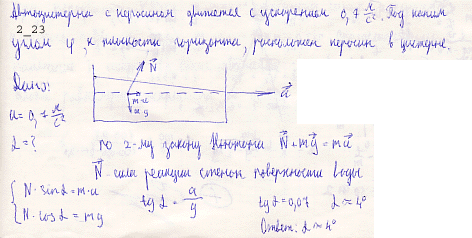 Автоцистерна с керосином движется с ускорением 0,7 м/с². Под каким
2_23
углом φ, к плоскости горизонта, расположен керосин в цистерне.
Дано:
a = 0,7 м/с²
α = ?
N
m·a
m g
a
по 2-му закону Ньютона N + mg = ma
N - сила реакции поверхности воды
{ N · sin α = m · a
N · cos α = mg
tg α = a/g
tg α = 0,07 α ≈ 4°
Ответ: α ≈ 4°